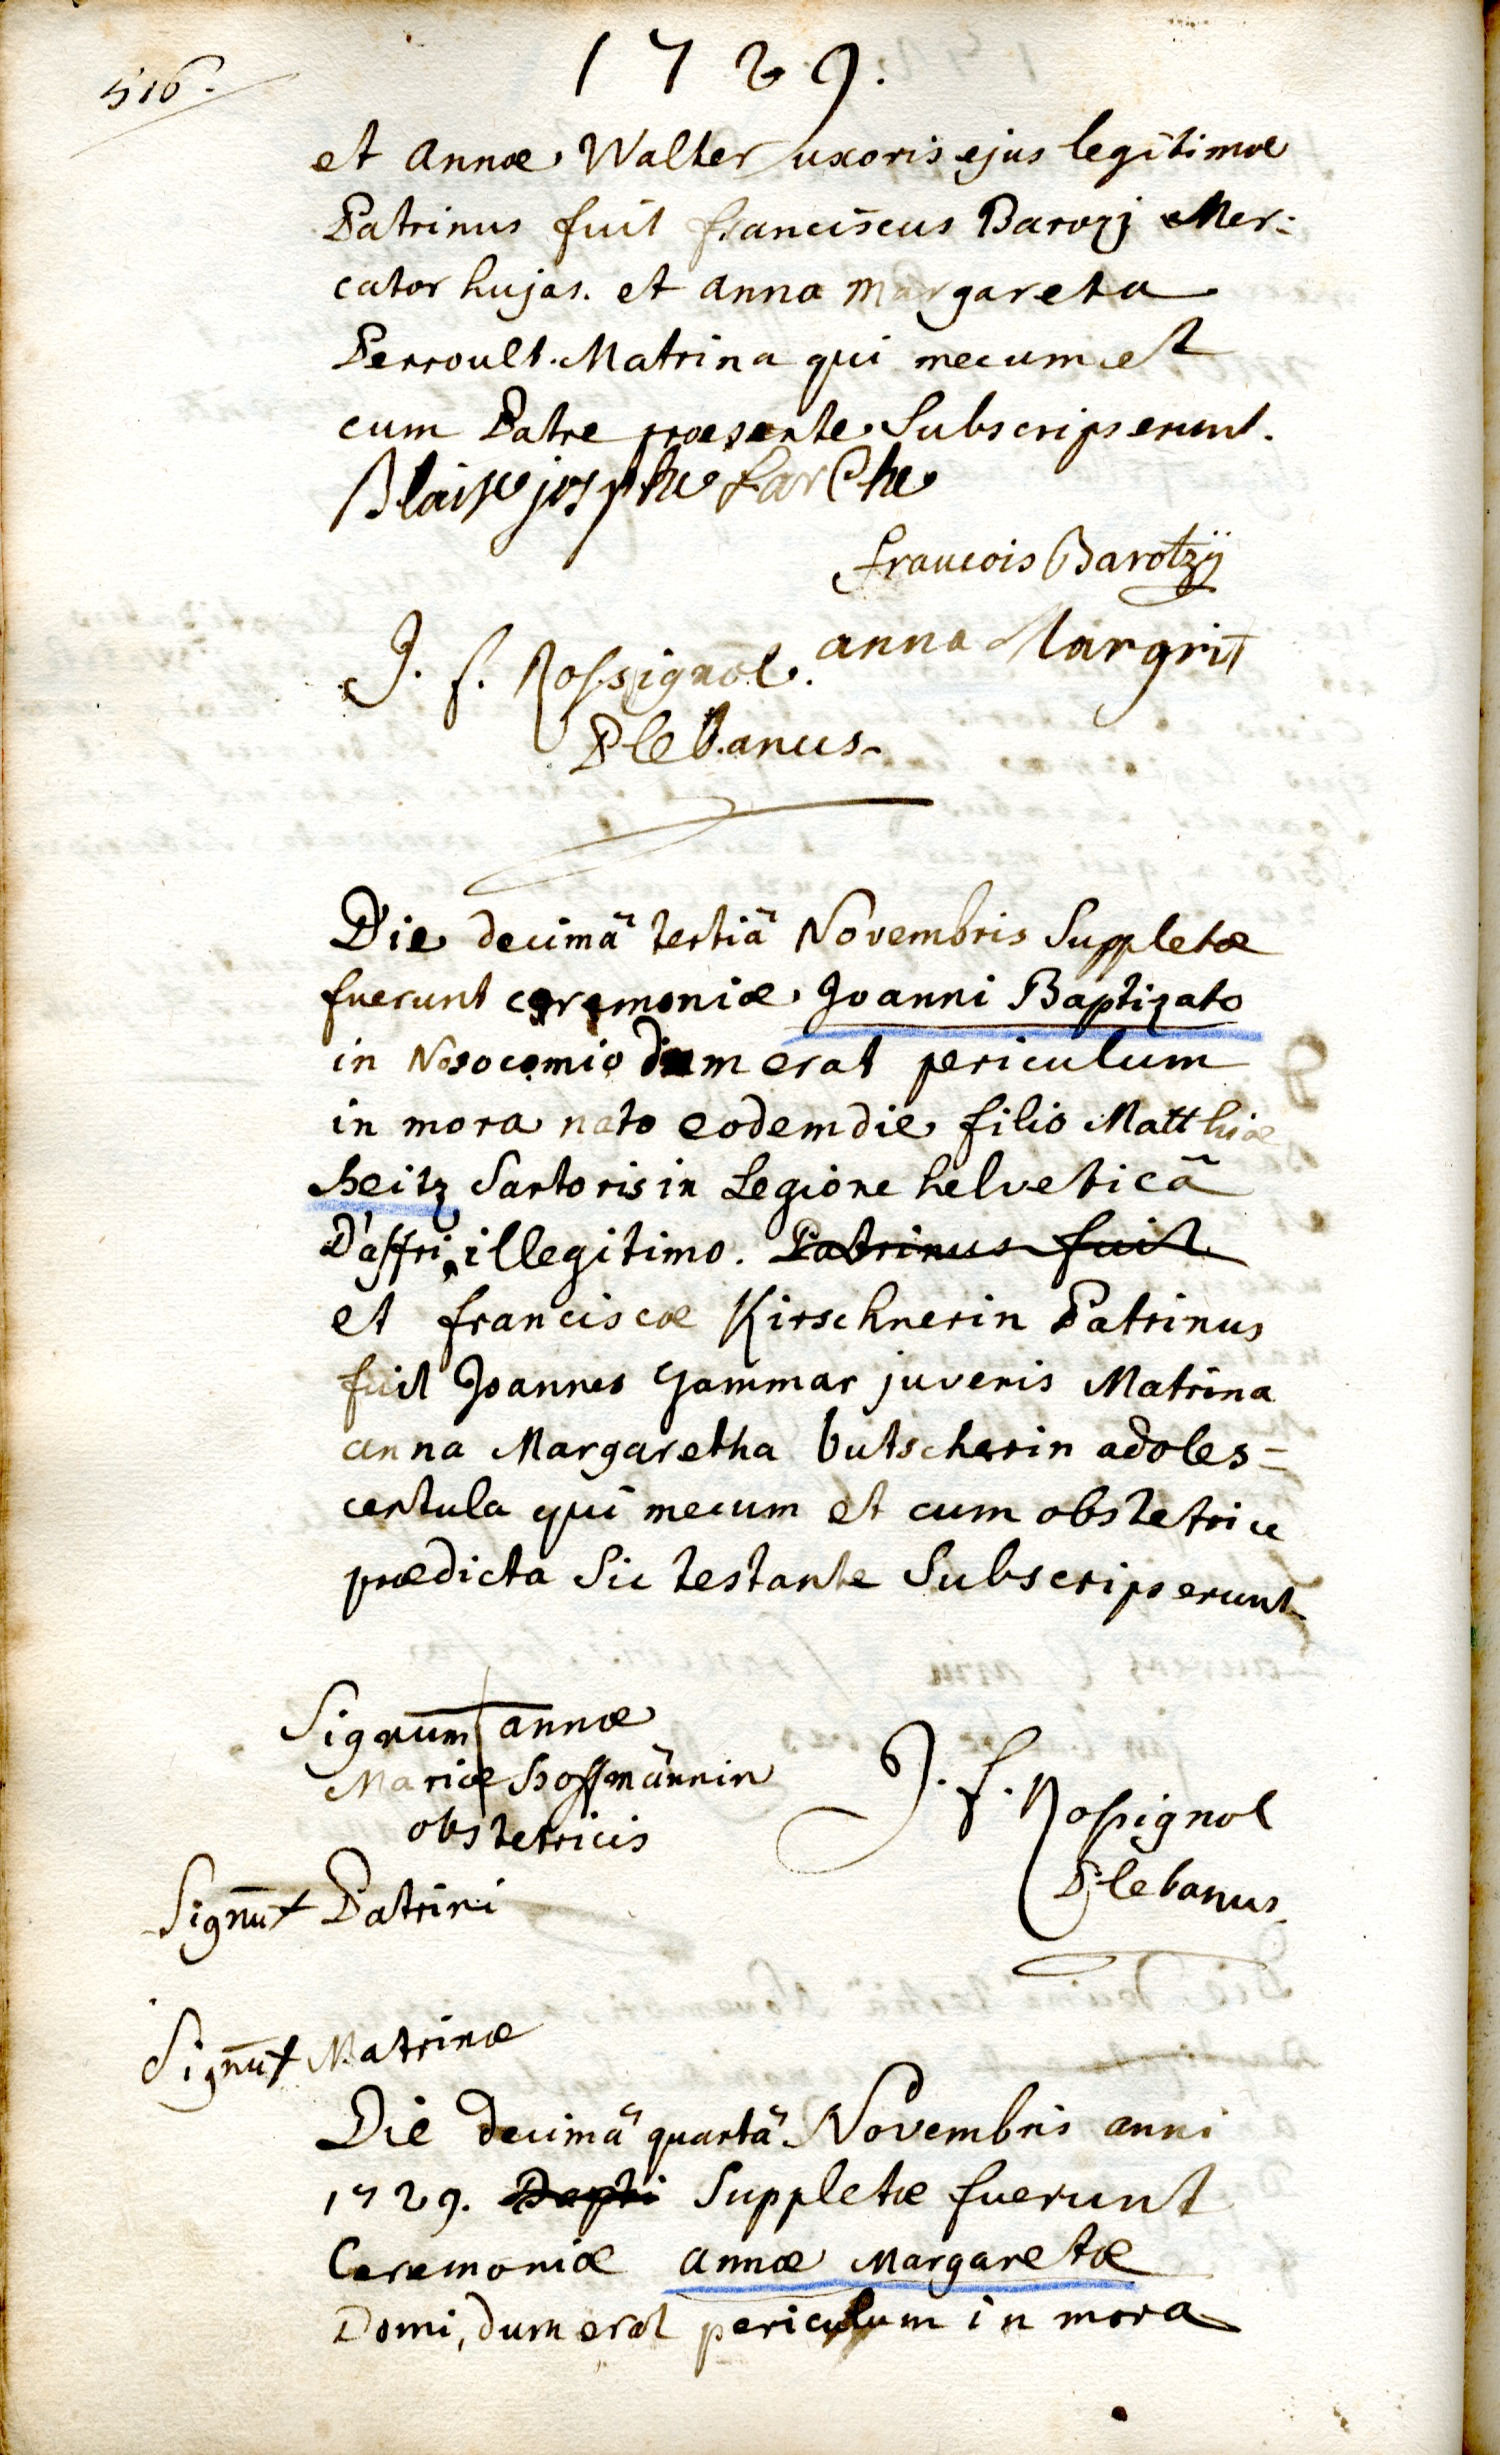 516.
1729.
et Annæ Walter uxoris ejus legitimæ
Patrinus fuit franciscus Barozj Mer:
cator hujas. et anna Margareta
Perroult. Matrina qui mecum et
cum Patre præsente Subscripserunt.
Blaise josphe LarChe
francois Barotzÿ
anna Margrit
J. f. Rossignol.
Plebanus
Die decimâ tertiâ Novembris Suppletæ
fuerunt ceremoniæ Joanni Baptizato
in Nosocomio dum erat periculum
in mora nato eodem die filio Matthiæ
heitz Sartoris in Legione helveticâ
D'affri, illegitimo. Patrinus fuit
et franciscæ Kirschnerin Patrinus
fuit Joannes Gammar juvenis Matrina
anna Margaretha butscherin adoles=
centula qui mecum et cum obstetrice
prædicta Sic testante Subscripserunt
Signum annæ
Mariæ hoffmännin
obstetricis
J. f. Rossignol
Plebanus
Signū + Patrini
Signū + Matrinæ
Die decimâ quartâ Novembris anni
1729. Bapti Suppletæ fuerunt
Ceremoniæ annæ Margaretæ
Domi, dum erat periculum in mora